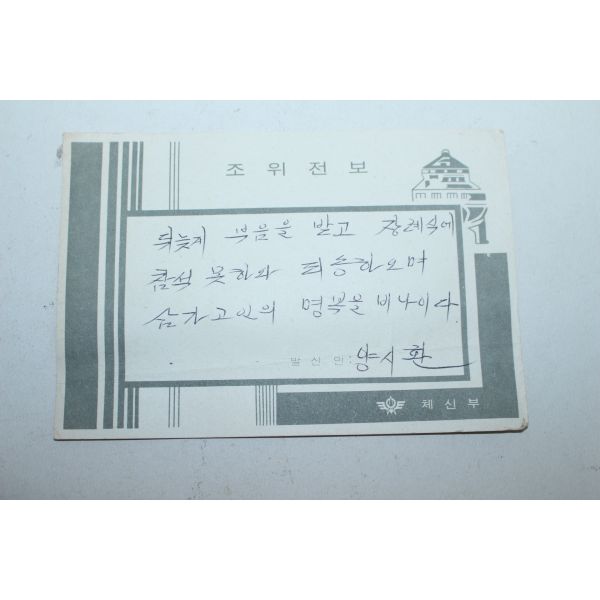 조위전보
뒤늦게 부음을 받고 장례식에
참석 못하와 죄송하오며
삼가 고인의 명복을 비나이다.
발신인: 양시환
체신부